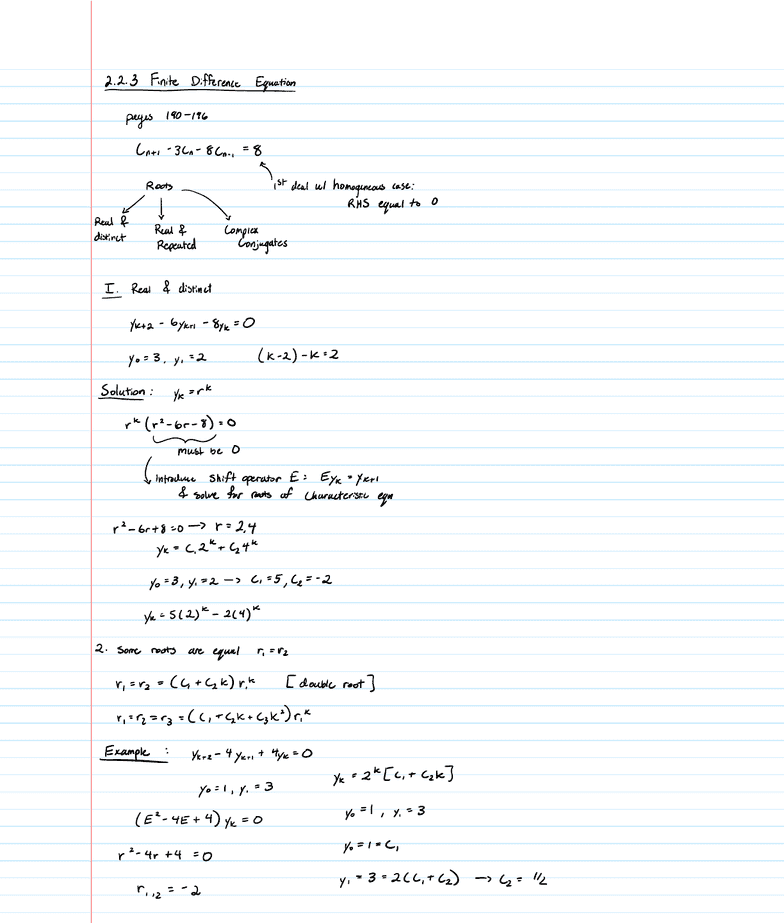 2.2.3 Finite Difference Equation
pages 190-196
C_{n+1} - 3C_n - 8C_{n-1} = 8
1st deal w/ homogeneous case:
RHS equal to 0
Roots
Real & distinct
Real & Repeated
Complex Conjugates
I. Real & distinct
y_{k+2} - 6y_{k+1} - 8y_k = 0
y_0 = 3, y_1 = 2 (k-2) - k = 2
Solution: y_k = r^k
r^k (r^2 - 6r - 8) = 0
must be 0
Introduce shift operator E: Ey_k = y_{k+1}
& solve for roots of characteristic eqn
r^2 - 6r + 8 = 0 → r = 2,4
y_k = C_1 2^k + C_2 4^k
y_0 = 3, y_1 = 2 → C_1 = 5, C_2 = -2
y_k = 5(2)^k - 2(4)^k
2. Some roots are equal r_1 = r_2
r_1 = r_2 = (C_1 + C_2 k) r_1^k [double root]
r_1 = r_2 = r_3 = (C_1 + C_2 k + C_3 k^2) r_1^k
Example: y_{k+2} - 4y_{k+1} + 4y_k = 0
y_0 = 1, y_1 = 3
(E^2 - 4E + 4) y_k = 0
r^2 - 4r + 4 = 0
r_{1,2} = -2
y_k = 2^k [C_1 + C_2 k]
y_0 = 1, y_1 = 3
y_0 = 1 = C_1
y_1 = 3 = 2(C_1 + C_2) → C_2 = 1/2